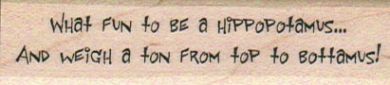 What fun to be a hippopotamus...
And weigh a ton from top to bottamus!